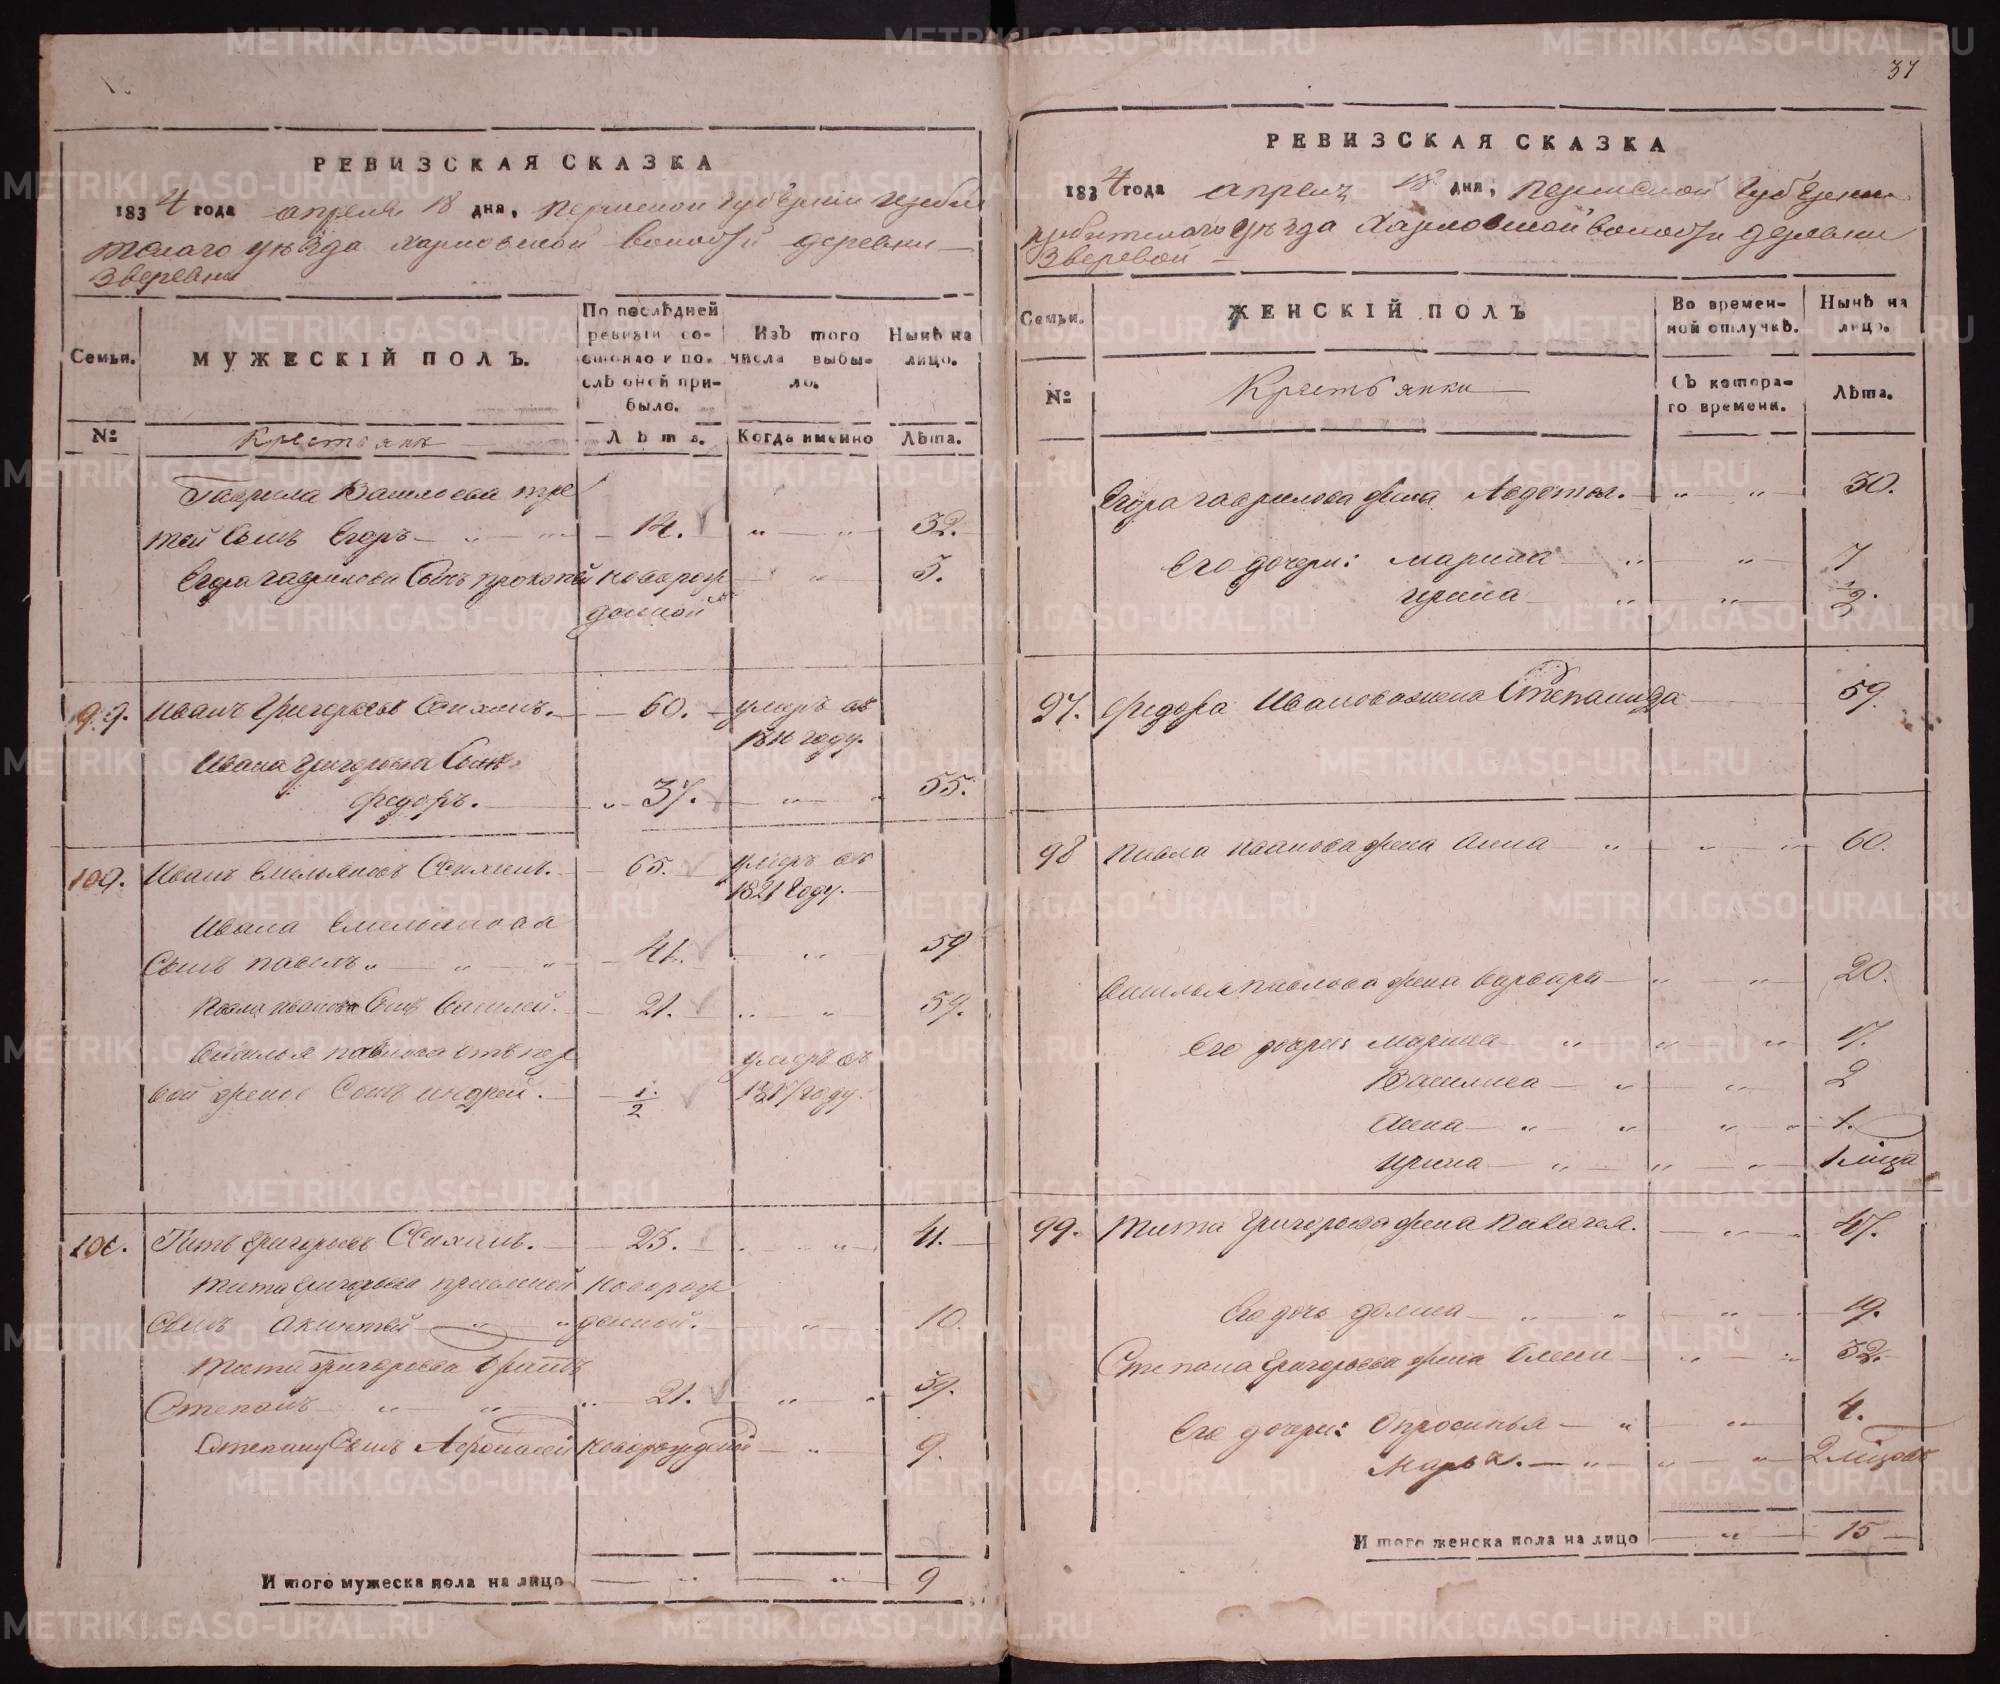 РЕВИЗСКАЯ СКАЗКА
1834 года апреля 18 дня, пермской губернии ирбит
скаго уѣзда харловской волости деревни
Зверевки
Семьи.
МУЖЕСКІЙ ПОЛЪ.
По послѣдней ревизіи состояло и послѣ оной прибыло.
Изъ того числа выбыло.
Нынѣ на лицо.
№
Крестьяне
Лѣта.
Когда именно
Лѣта.
Гаврила Васильева тре
тей Сынъ Егоръ 14. 32.
Егора гаврилова Сынъ новорож 3.
денной
99. Иванъ Григорьевъ 60. умеръ въ
1816 году.
Ивана Григорьева Сынъ
федоръ. 37. 55.
100. Иванъ Емельяновъ 65. умеръ въ
1821 году.
Ивана Емельянова
Сынъ павелъ 41. 59
Павла иванова Сынъ Василей. 21. 39.
Василья павлова отъ пер
вой жены Сынъ андрей. 1/2 умеръ въ
году.
101. Титъ Григорьевъ 23. 41.
Тита Григорьева приемной новорож
Сынъ акинтей денной. 10.
Тита Григорьева братъ
Степанъ 21. 39.
Степану Сынъ Афонасей новорожденой 9.
Итого мужеска пола на лицо 9
37
РЕВИЗСКАЯ СКАЗКА
1834 года апреля 18 дня, пермской губернии
ирбитскаго уѣзда Харловской волости деревни
Зверевой
Семьи.
ЖЕНСКІЙ ПОЛЪ
Во временной отлучкѣ.
Нынѣ на лицо.
№
Крестьянки
Съ котораго времени.
Лѣта.
Егора гаврилова жена Авдотья. 30.
Его дочери: марина 7
ирина 2.
97. федора Иванова жена Степанида 59.
98 павла иванова жена анна 60.
василья павлова жена варвара 20.
Его дочери: Марина
Василиса 2
Анна 1.
ирина 1 мца
99. Тита Григорьева жена 47.
Его дочь домна 19.
Степана Григорьева жена Олена 32.
Его дочери: Опросинья 4.
Марья. 2 мцовъ
Итого женска пола на лицо 15
METRIKI.GASO-URAL.RU